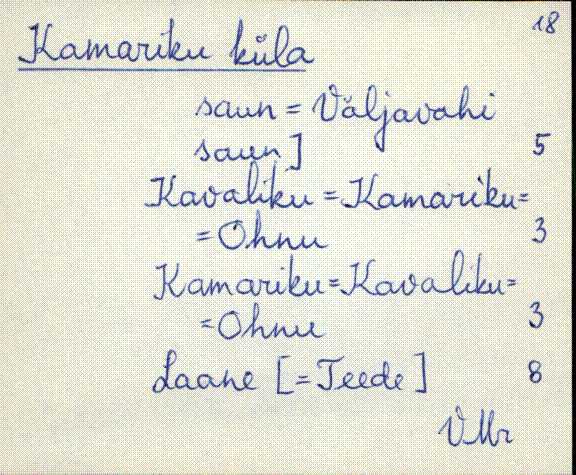 18
Kamariku küla
saun = Väljavahi
saun] 5
Kavaliku = Kamariku =
= Ohnu 3
Kamariku = Kavaliku =
= Ohnu 3
Laane [= Teede] 8
VMr